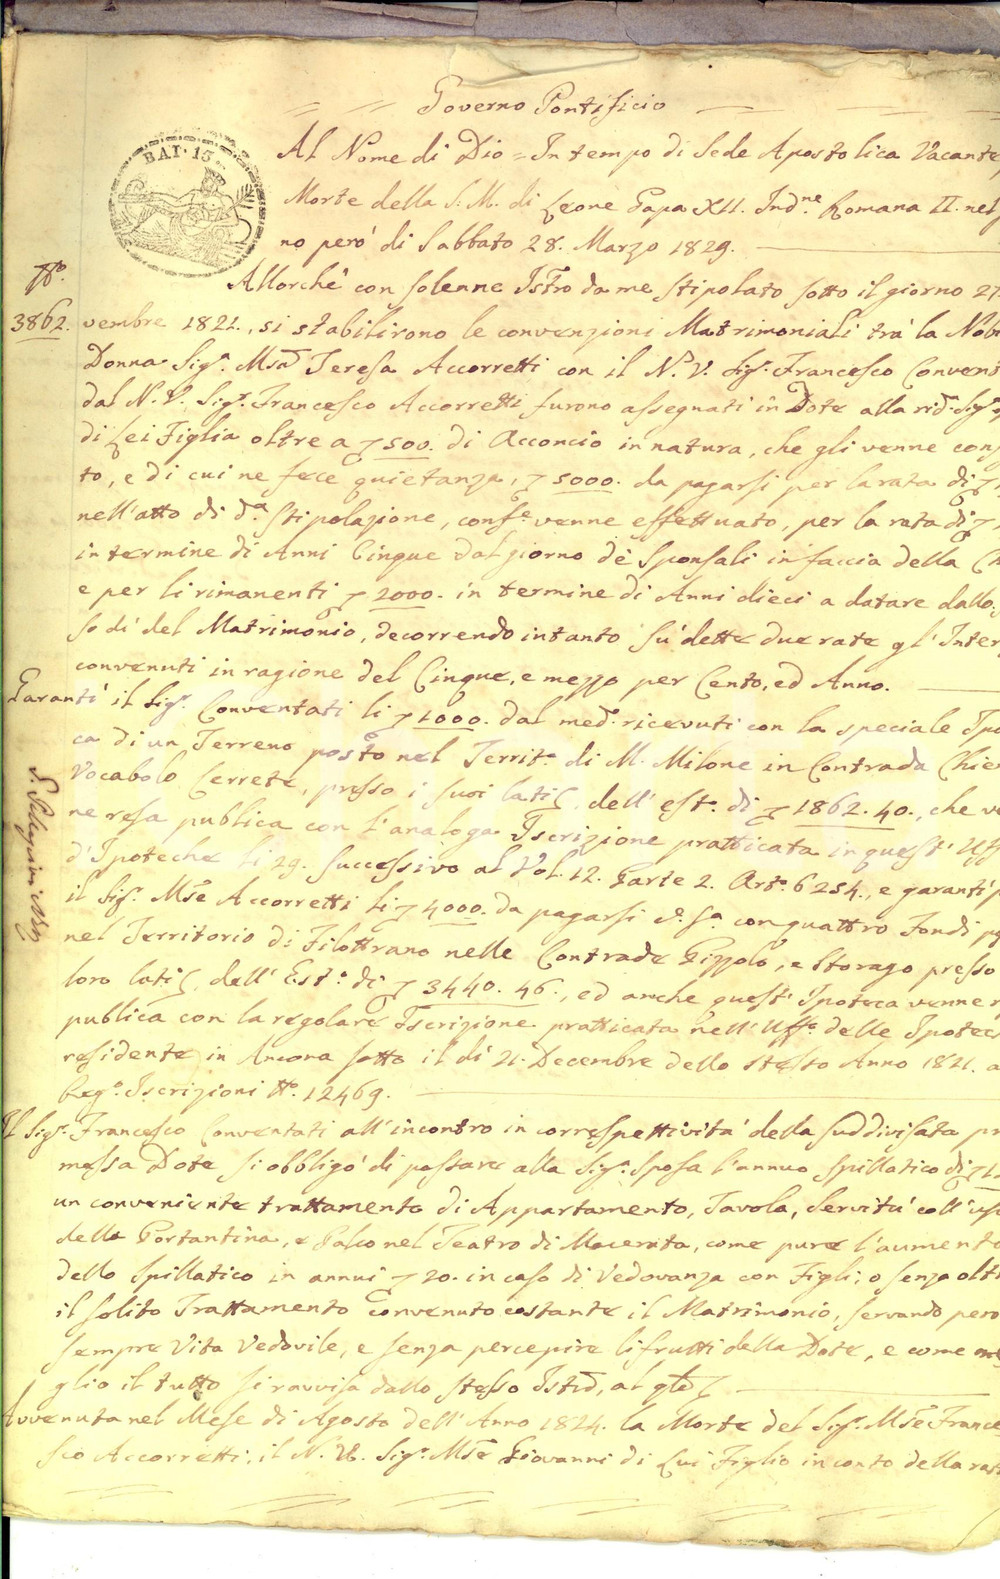 Governo Pontificio
BAI · 15
Al Nome di Dio = In tempo di Sede Apostolica Vacante
Morte della S. M. di Leone Papa XII. Indne. Romana II. nel
no però di Sabbato 28. Marzo 1829.
No. 3862.
Allorchè con solenne Istro da me stipolato sotto il giorno 27
vembre 1821., si stabilirono le convenzioni Matrimoniali trà la Nob
Donna Siga. Msa Teresa Accorretti con il N. V. Sigr. Francesco Convent
dal N. V. Sigr. Francesco Accorretti furono assegnati in Dote alla rid. Siga
di Lei Figlia oltre a 500. di Acconcio in natura, che gli venne con
to, e di cui ne fece quietanza, 5000. da pagarsi per la rata di
nell'atto di da. Stipolazione, confe. venne effettuato, per la rata di
in termine di Anni Cinque dal giorno dè Sponsali in faccia della Ch
e per li rimanenti 2000. in termine di Anni dieci a datare dallo
so dì del Matrimonio, decorrendo intanto sù dette due rate gl'Inter
convenuti in ragione del Cinque, e mezzo per Cento, ed Anno.
Garantì il Sigr. Conventati li 1000. dal med. ricevuti con la speciale Ipo
ca di un Terreno posto nel Territo. di M. Milone in Contrada Chie
Vocabolo Cerrete, presso i suoi lati dell'esto. di 1862. 40., che ve
ne resa publica con l'analoga Iscrizione pratticata in quest'Uff
d'Ipoteche li 29. successivo al Vol. 12. Parte 2. Arto. 6254., e garantì
il Sigr. Mse Accorretti li 4000. da pagarsi con quattro Fondi
nel Territorio di Filottrano nelle Contrade Pizzolo, e Storago presso
loro lati dell'Esto. di 3440. 46., ed anche quest'Ipoteca venne
publica con la regolare Iscrizione pratticata nell'Uffo. delle Ipotec
residente in Ancona sotto il dì 21. Decembre dello stesso Anno 1821. a
Rego. Iscrizioni No. 12469.
Il Sigr. Francesco Conventati all'incontro in correspettività della suddivisata pr
messa Dote si obbligò di passare alla Siga. Sposa l'annuo spillatico di
un conveniente trattamento di Appartamento, Tavola, Servitù coll'uso
della Portantina, e Palco nel Teatro di Macerata, come pure l'aumento
dello Spillatico in annui 20. in caso di Vedovanza con Figli; o senza oltre
il solito Trattamento convenuto costante il Matrimonio, servando però
sempre Vita Vedovile, e senza percepire li frutti della Dote, e come me
glio il tutto si ravvisa dallo stesso Isto, al qle
Avvenuta nel Mese di Agosto dell'Anno 1824. la Morte del Sigr. Mse France
sco Accorretti; il N. V. Sigr. Mse Giovanni di Lui Figlio in conto della rat